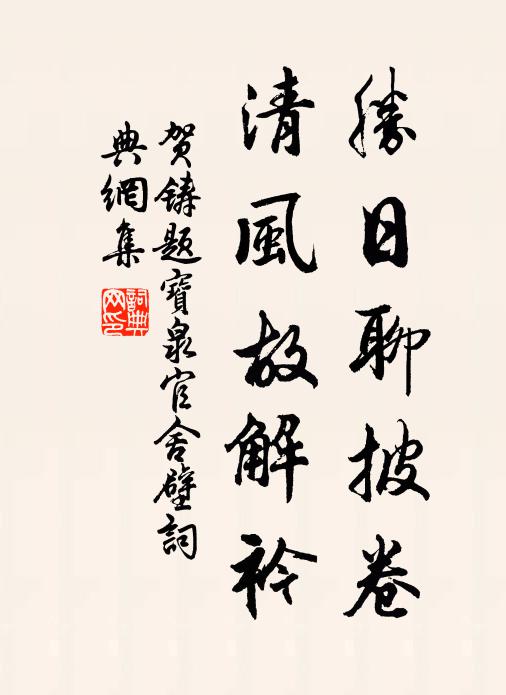 勝日聊披卷
清風故解衿
賀鑄題寶泉官舍壁詞
典網集
詞典網印